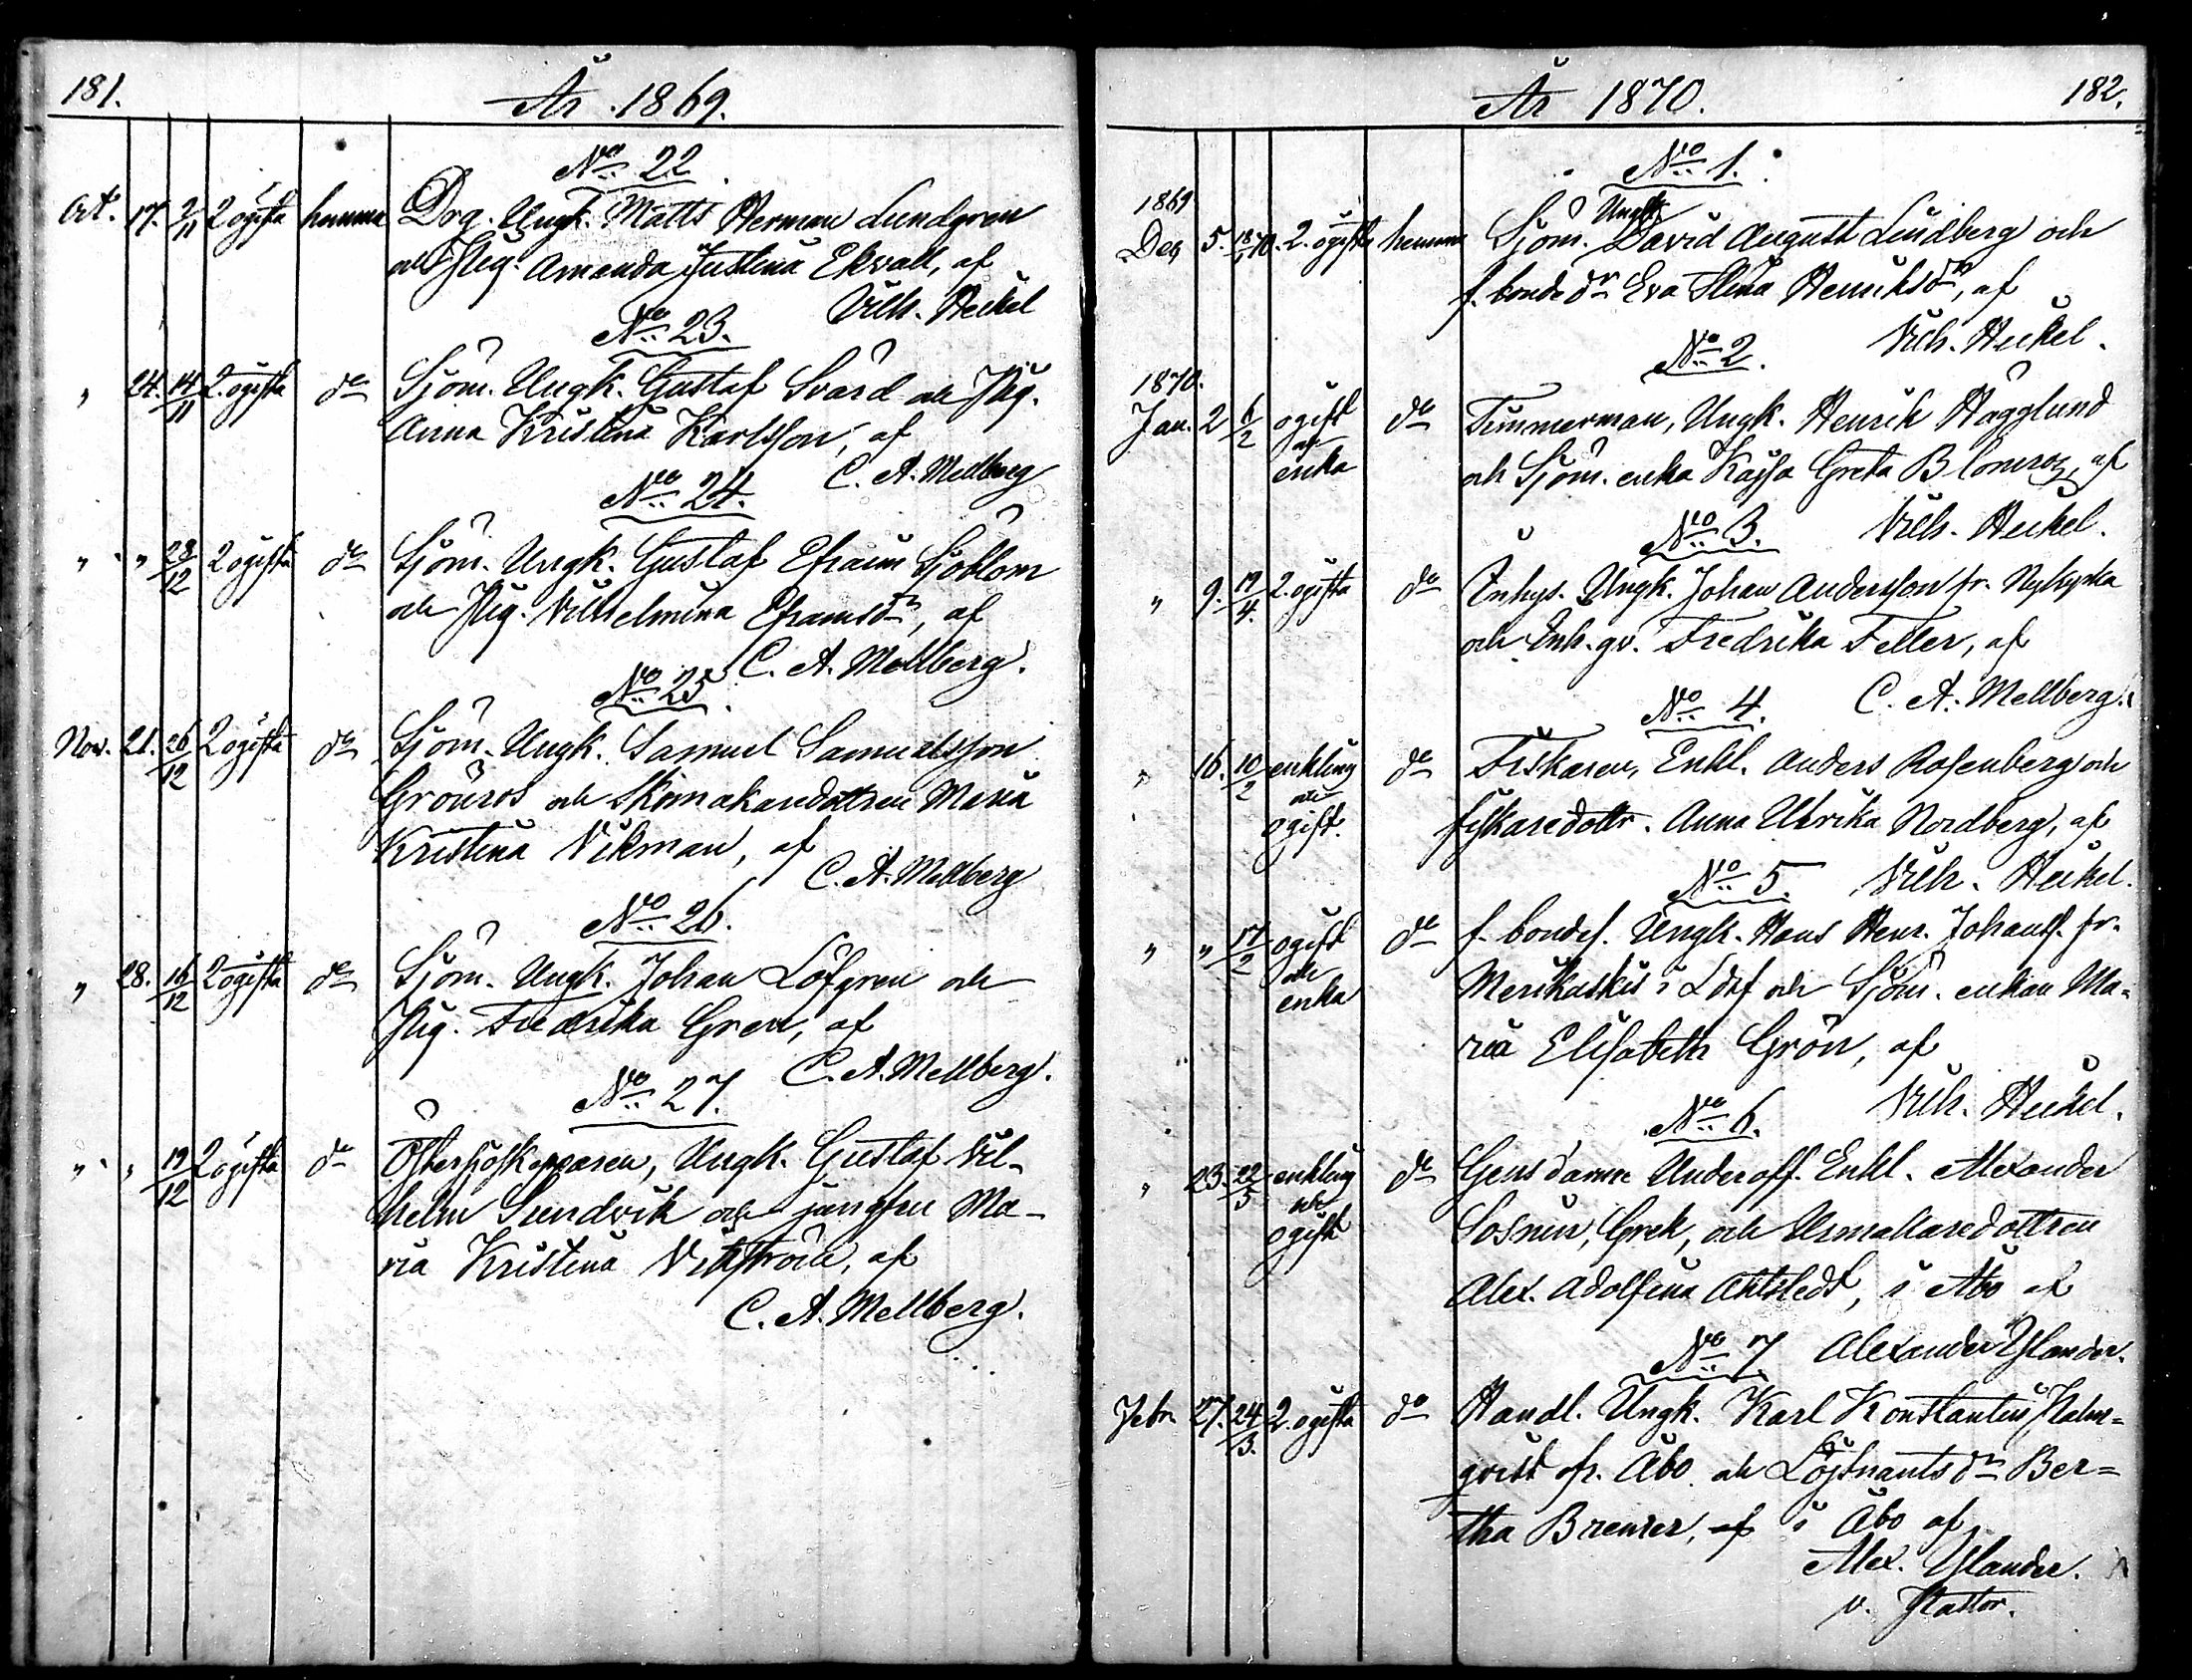 181.
År 1869.
No 22
Oct. 17. 2/11 2 ogifta hemma Drg. Ungk. Matts Herman Lundgren
och Pig. Amanda Justina Ekvall, af
Vilh. Heikel
No 23.
„ 24. 14/11 2. ogifta do Sjöm. Ungk. Gustaf Svärd och Pig.
Anna Kristina Karlsson, af
C. A. Mellberg
No 24.
„ „ 28/12 2 ogifta do Sjöm. Ungk. Gustaf Efraim Sjöblom
och Pig. Vilhelmina Eframsdr, af
C. A. Mellberg.
No 25.
Nov. 21. 26/12 2 ogifta do Sjöm. Ungk. Samuel Samuelsson
Grönros och Skomakaredottren Maria
Kristina Vikman, af
C. A. Mellberg
No 26.
„ 28. 16/12 2 ogifta do Sjöm. Ungk. Johan Löfgren och
Pig. Fredrika Gren, af
C. A. Mellberg.
No 27.
„ „ 19/12 2 ogifta do Östersjöskepparen, Ungk. Gustaf Vil-
helm Sundvik och jungfru Ma-
ria Kristina Vikström, af
C. A. Mellberg.
År 1870.
182.
No 1.
1869
Ungk.
Dec. 5. 18/1 70. 2. ogifta hemma Sjöm. David August Lindberg och
f. bonde dr Eva Stina Henriksdr, af
Vilh. Heikel.
No 2.
1870.
Jan. 2 6/2 ogift och enka do Timmerman, Ungk. Henrik Hägglund
och Sjöm. enka Kajsa Greta Blomros, af
Vilh. Heikel.
No 3.
„ 9. 19/4. 2. ogifta do Inhys. Ungk. Johan Andersson fr. Nykyrka
och Inh. gv. Fredrika Feller, af
C. A. Mellberg.
No 4.
„ 16. 10/2 enkling och ogift. do Fiskaren, Enkl. Anders Rosenberg och
fiskaredottr. Anna Ulrika Nordberg, af
Vilh. Heikel.
No 5.
„ „ 17/2 ogift och enka do f. bondes. Ungk. Hans Henr. Johanss. fr.
i Ldsf och Sjöm. enkan Ma=
ria Elisabeth Grön, af
Vilh. Heikel.
No 6.
„ 23. 22/5 enkling och ogift do Gensdarme Underoff. Enkl. Alexander
Sosnin, Grek, och Urmakaredottren
Alex. Adolfina Ahlstedt, i Åbo af
Alexander Ylander.
No 7
Febr. 27. 24/3. 2. ogifta do Handl. Ungk. Karl Konstantin Malm=
qvist fr. Åbo och Löjtnants dr Ber=
tha Brenner, af i Åbo af
Alex. Ylander.
v. Pastor.